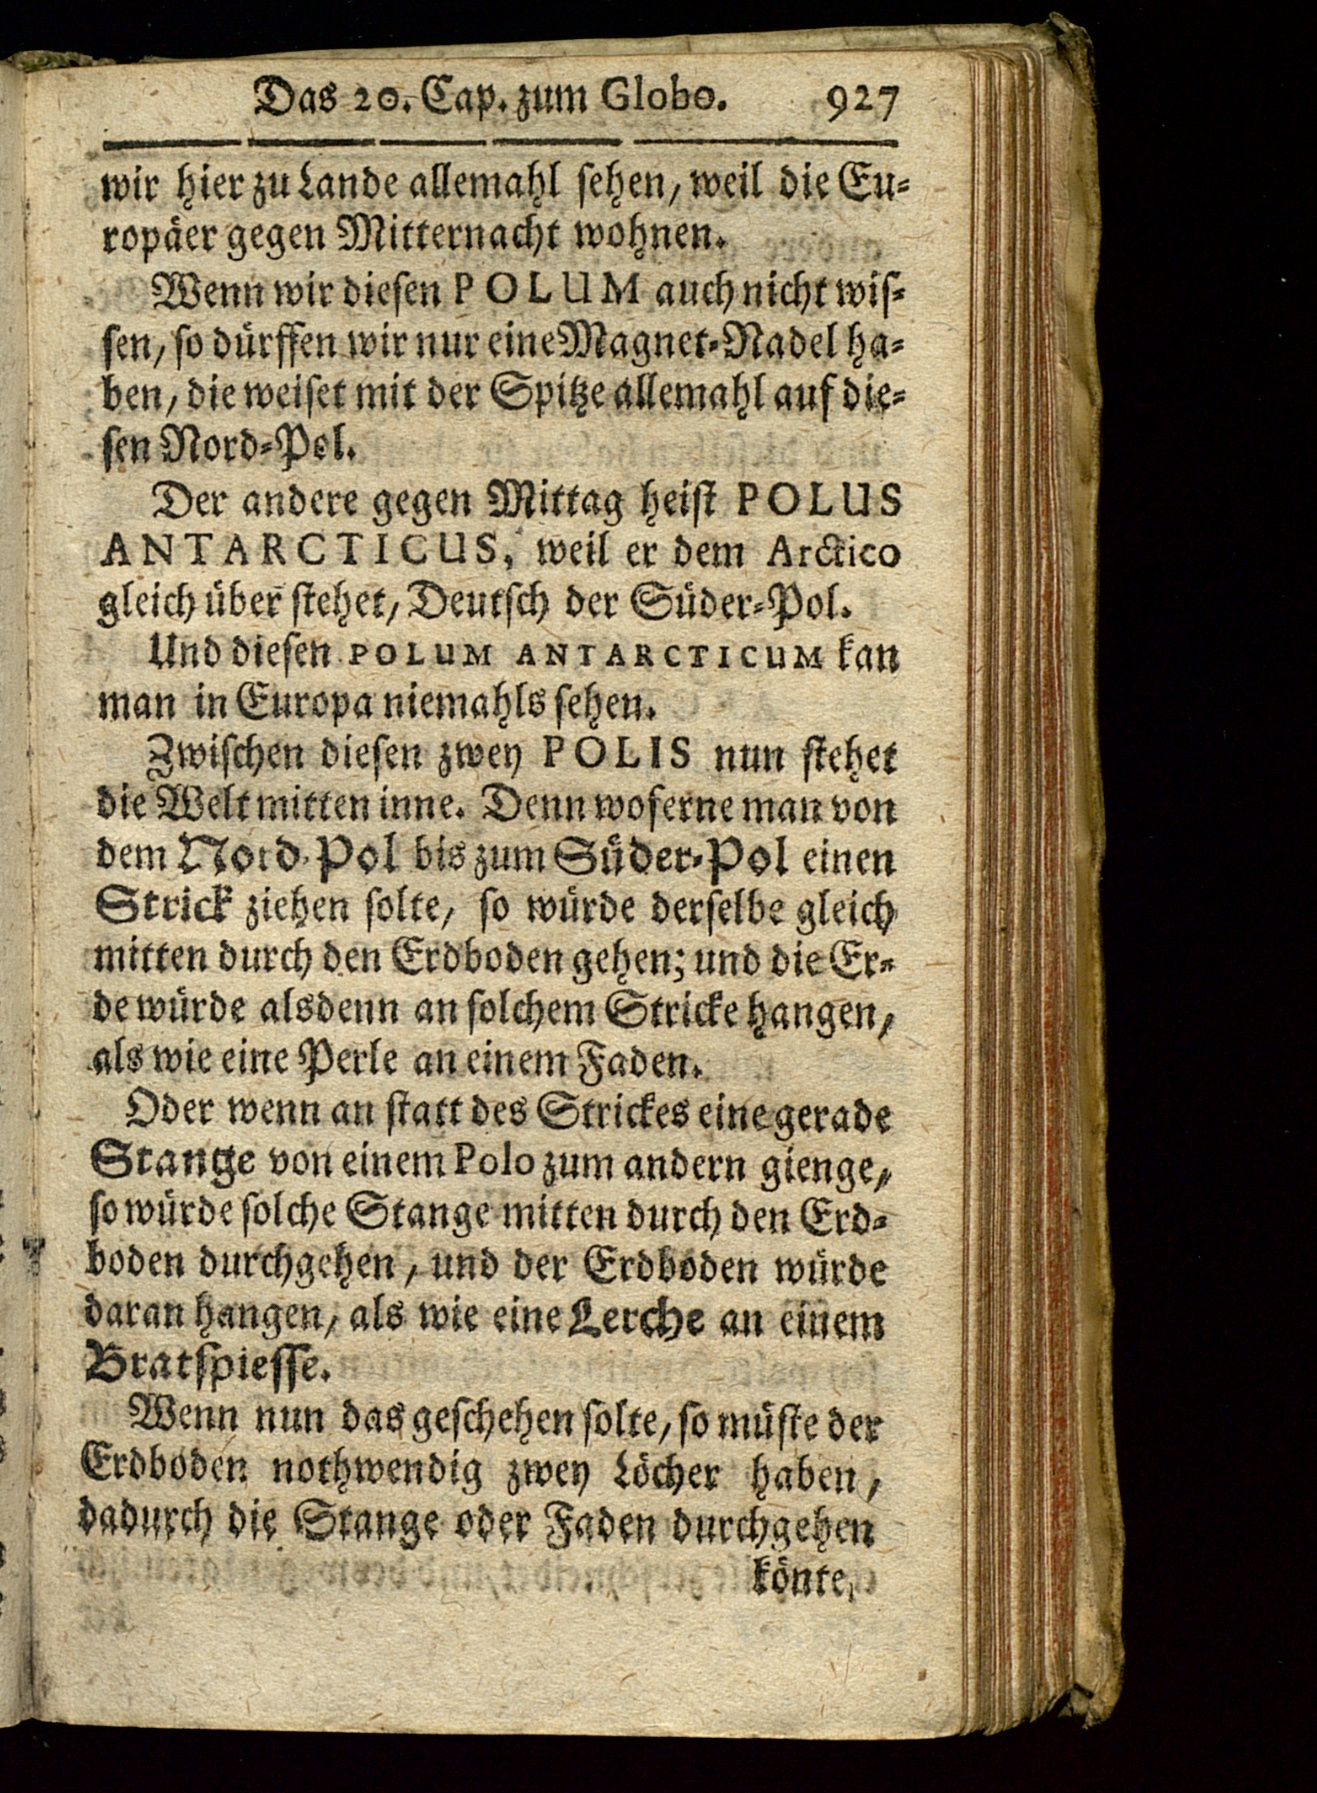 Das 20. Cap. zum Globo. 927
wir hier zu Lande allemahl sehen, weil die Eu-
ropäer gegen Mitternacht wohnen.
Wenn wir diesen POLUM auch nicht wis-
sen, so dürffen wir nur eine Magnet-Nadel ha-
ben, die weiset mit der Spitze allemahl auf die-
sen Nord-Pol.
Der andere gegen Mittag heist POLUS
ANTARCTICUS, weil er dem Arctico
gleich über stehet, Deutsch der Süder-Pol.
Und diesen POLUM ANTARCTICUM kan
man in Europa niemahls sehen.
Zwischen diesen zwey POLIS nun stehet
die Welt mitten inne. Denn woferne man von
dem Nord-Pol bis zum Süder-Pol einen
Strick ziehen solte, so würde derselbe gleich
mitten durch den Erdboden gehen; und die Er-
de würde alsdenn an solchem Stricke hangen,
als wie eine Perle an einem Faden.
Oder wenn an statt des Strickes eine gerade
Stange von einem Polo zum andern gienge,
so würde solche Stange mitten durch den Erd-
boden durchgehen, und der Erdboden würde
daran hangen, als wie eine Lerche an einem
Bratspiesse.
Wenn nun das geschehen solte, so müste der
Erdboden nothwendig zwey Löcher haben,
dadurch die Stange oder Faden durchgehen
könte,